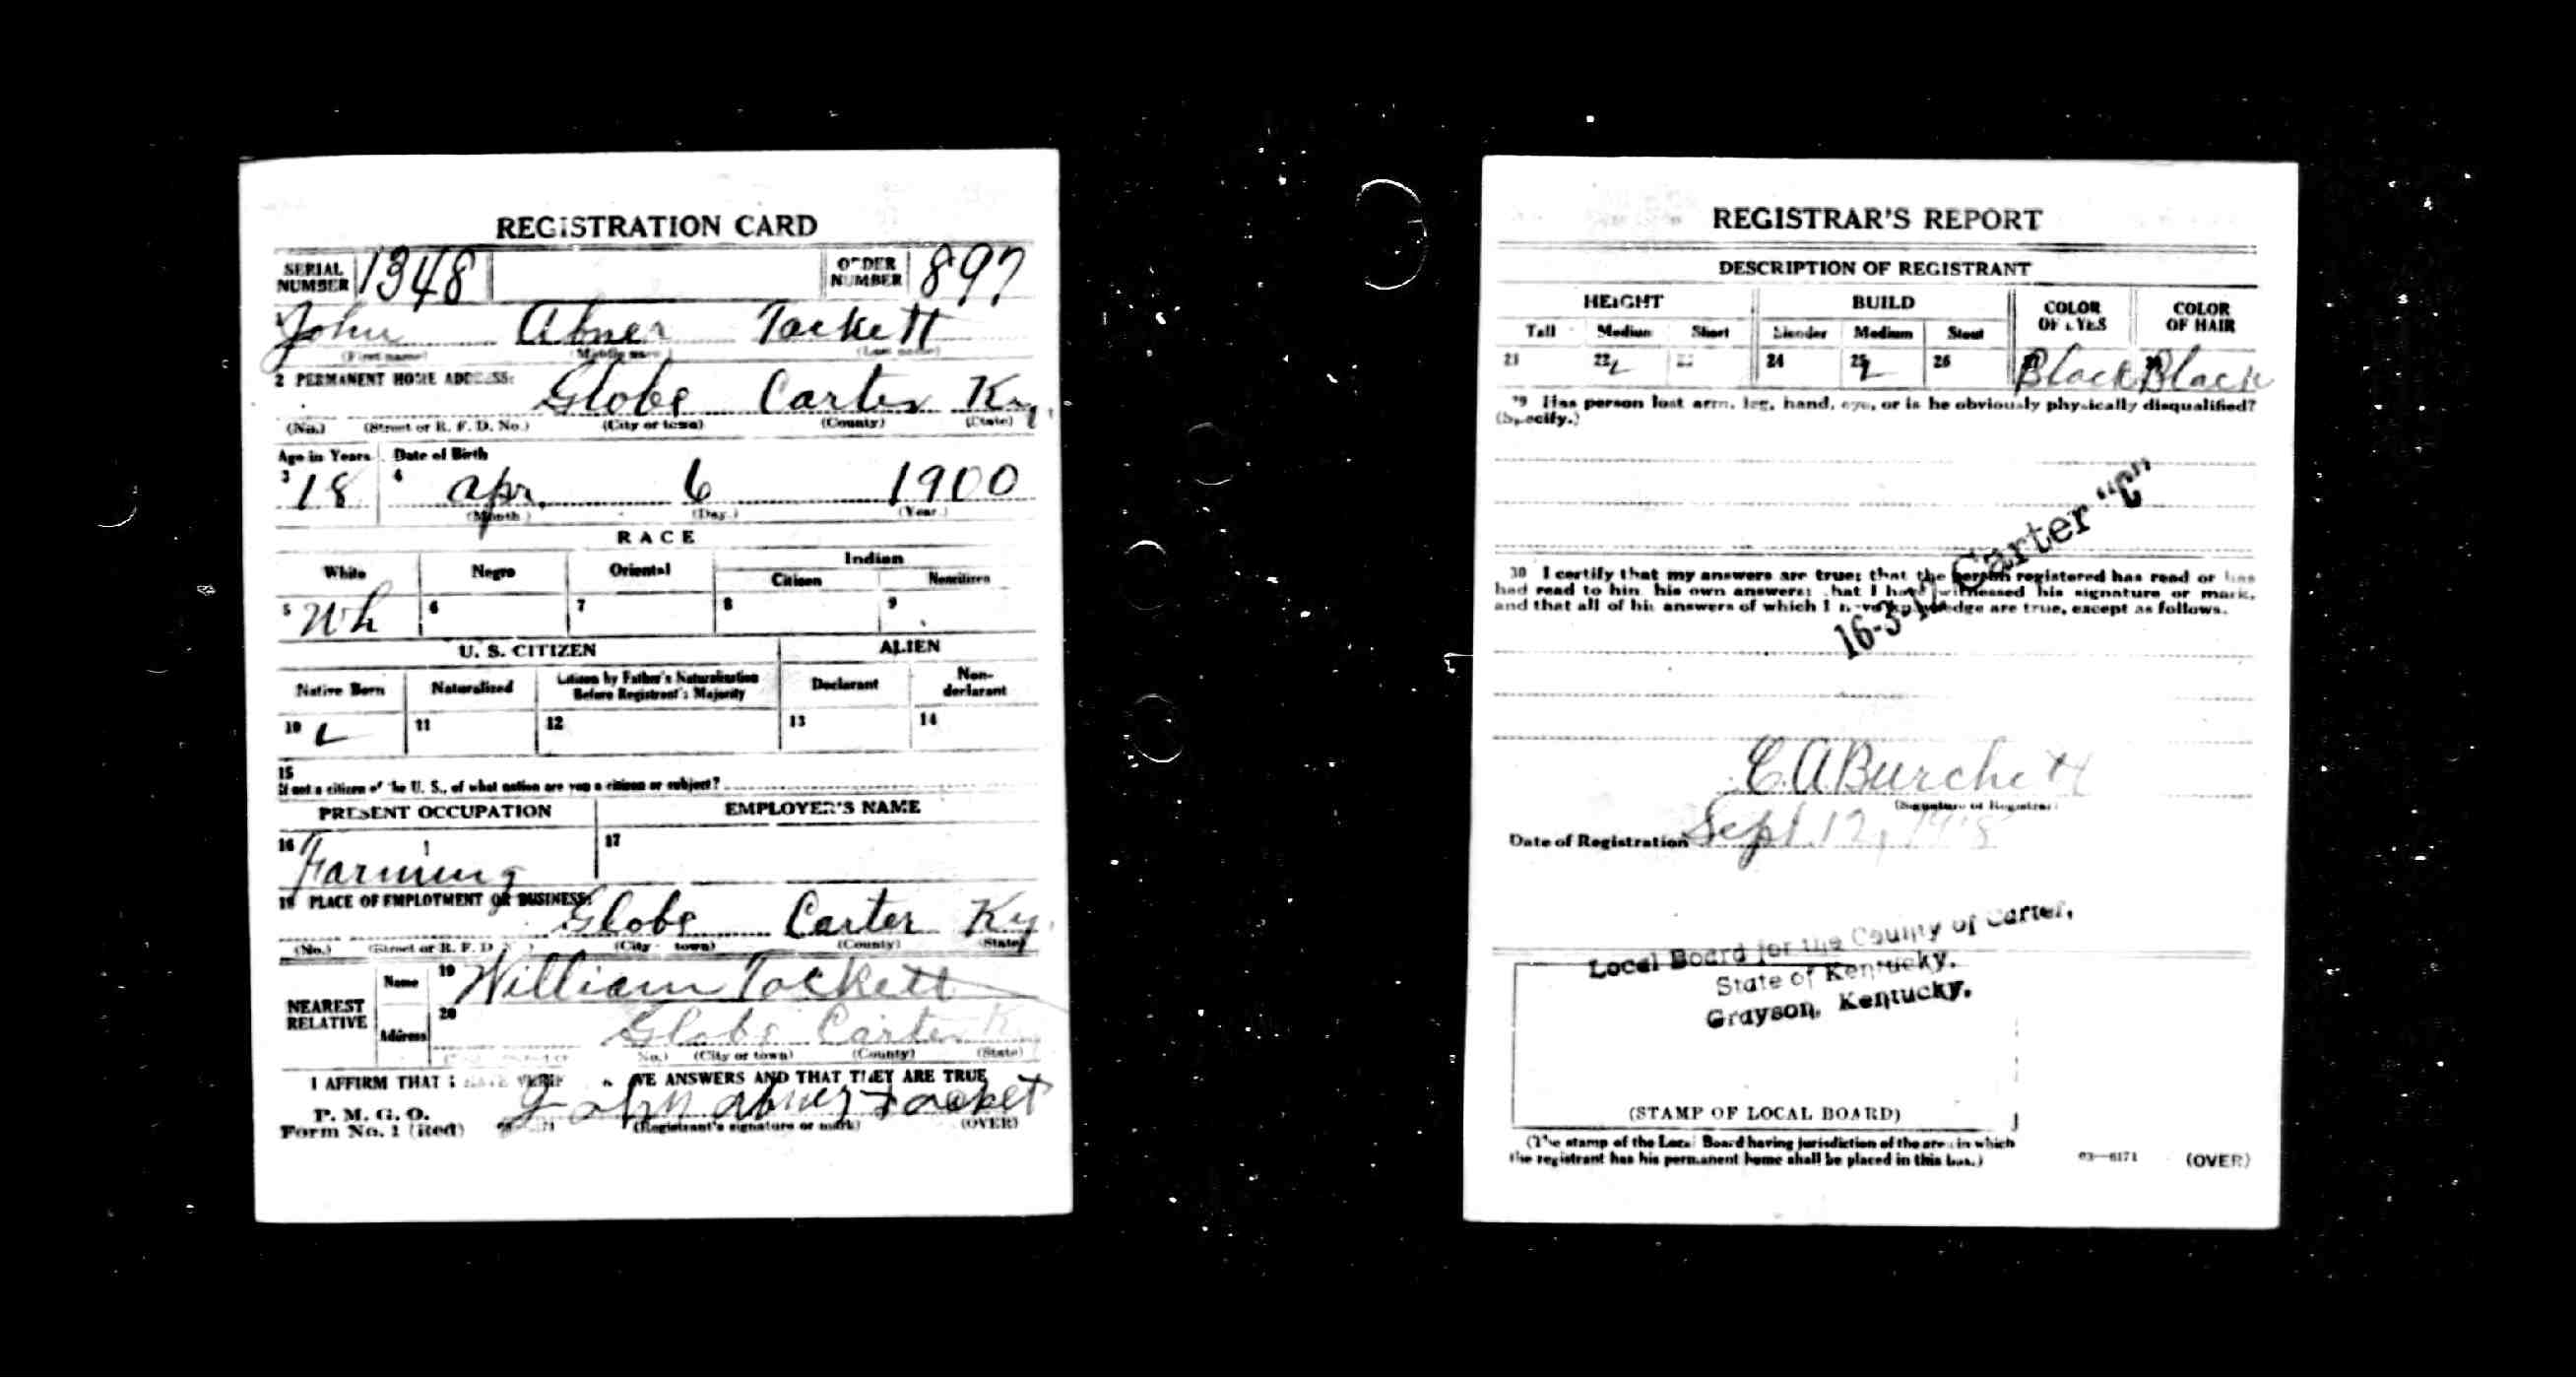 REGISTRATION CARD
SERIAL NUMBER 1348 ORDER NUMBER 897
John Abner Tackett
(First name) (Middle name) (Last name)
2 PERMANENT HOME ADDRESS:
Globe Carter Ky.
(No.) (Street or R. F. D. No.) (City or town) (County) (State)
Age in Years Date of Birth
3 18 4 Apr. 6 1900
(Month.) (Day.) (Year.)
RACE
White Negro Oriental Indian
Citizen Noncitizen
5 Wh 6 7 8 9
U. S. CITIZEN ALIEN
Native Born Naturalized Citizen by Father's Naturalization Before Registrant's Majority Declarant Non-declarant
10 11 12 13 14
15
If not a citizen of the U. S., of what nation are you a citizen or subject?
PRESENT OCCUPATION EMPLOYER'S NAME
16 Farming 17
PLACE OF EMPLOYMENT OR BUSINESS:
Globe Carter Ky.
(No.) (Street or R. F. D. (City town) (County) (State)
NEAREST RELATIVE
Name 19 William Tackett
Address 20 Globe Carter Ky
No.) (City or town) (County) (State)
I AFFIRM THAT I HAVE VERIF VE ANSWERS AND THAT THEY ARE TRUE
P. M. G. O.
Form No. 1 (Red) John Abner Tacket
(Registrant's signature or mark) (OVER)
REGISTRAR'S REPORT
DESCRIPTION OF REGISTRANT
HEIGHT BUILD COLOR OF EYES COLOR OF HAIR
Tall Medium Short Slender Medium Stout
21 22 24 25 26 Black Black
29 Has person lost arm, leg, hand, eye, or is he obviously physically disqualified?
(Specify.)
16-3-12 Carter "C"
30 I certify that my answers are true; that the person registered has read or has
had read to him his own answers; that I have witnessed his signature or mark,
and that all of his answers of which I have knowledge are true, except as follows.
C. A. Burchett
(Signature of Registrar)
Date of Registration Sept. 12, 1918
Local Board for the County of Carter,
State of Kentucky.
Grayson, Kentucky.
(STAMP OF LOCAL BOARD)
(The stamp of the Local Board having jurisdiction of the area in which
the registrant has his permanent home shall be placed in this box.)
03—6171 (OVER)